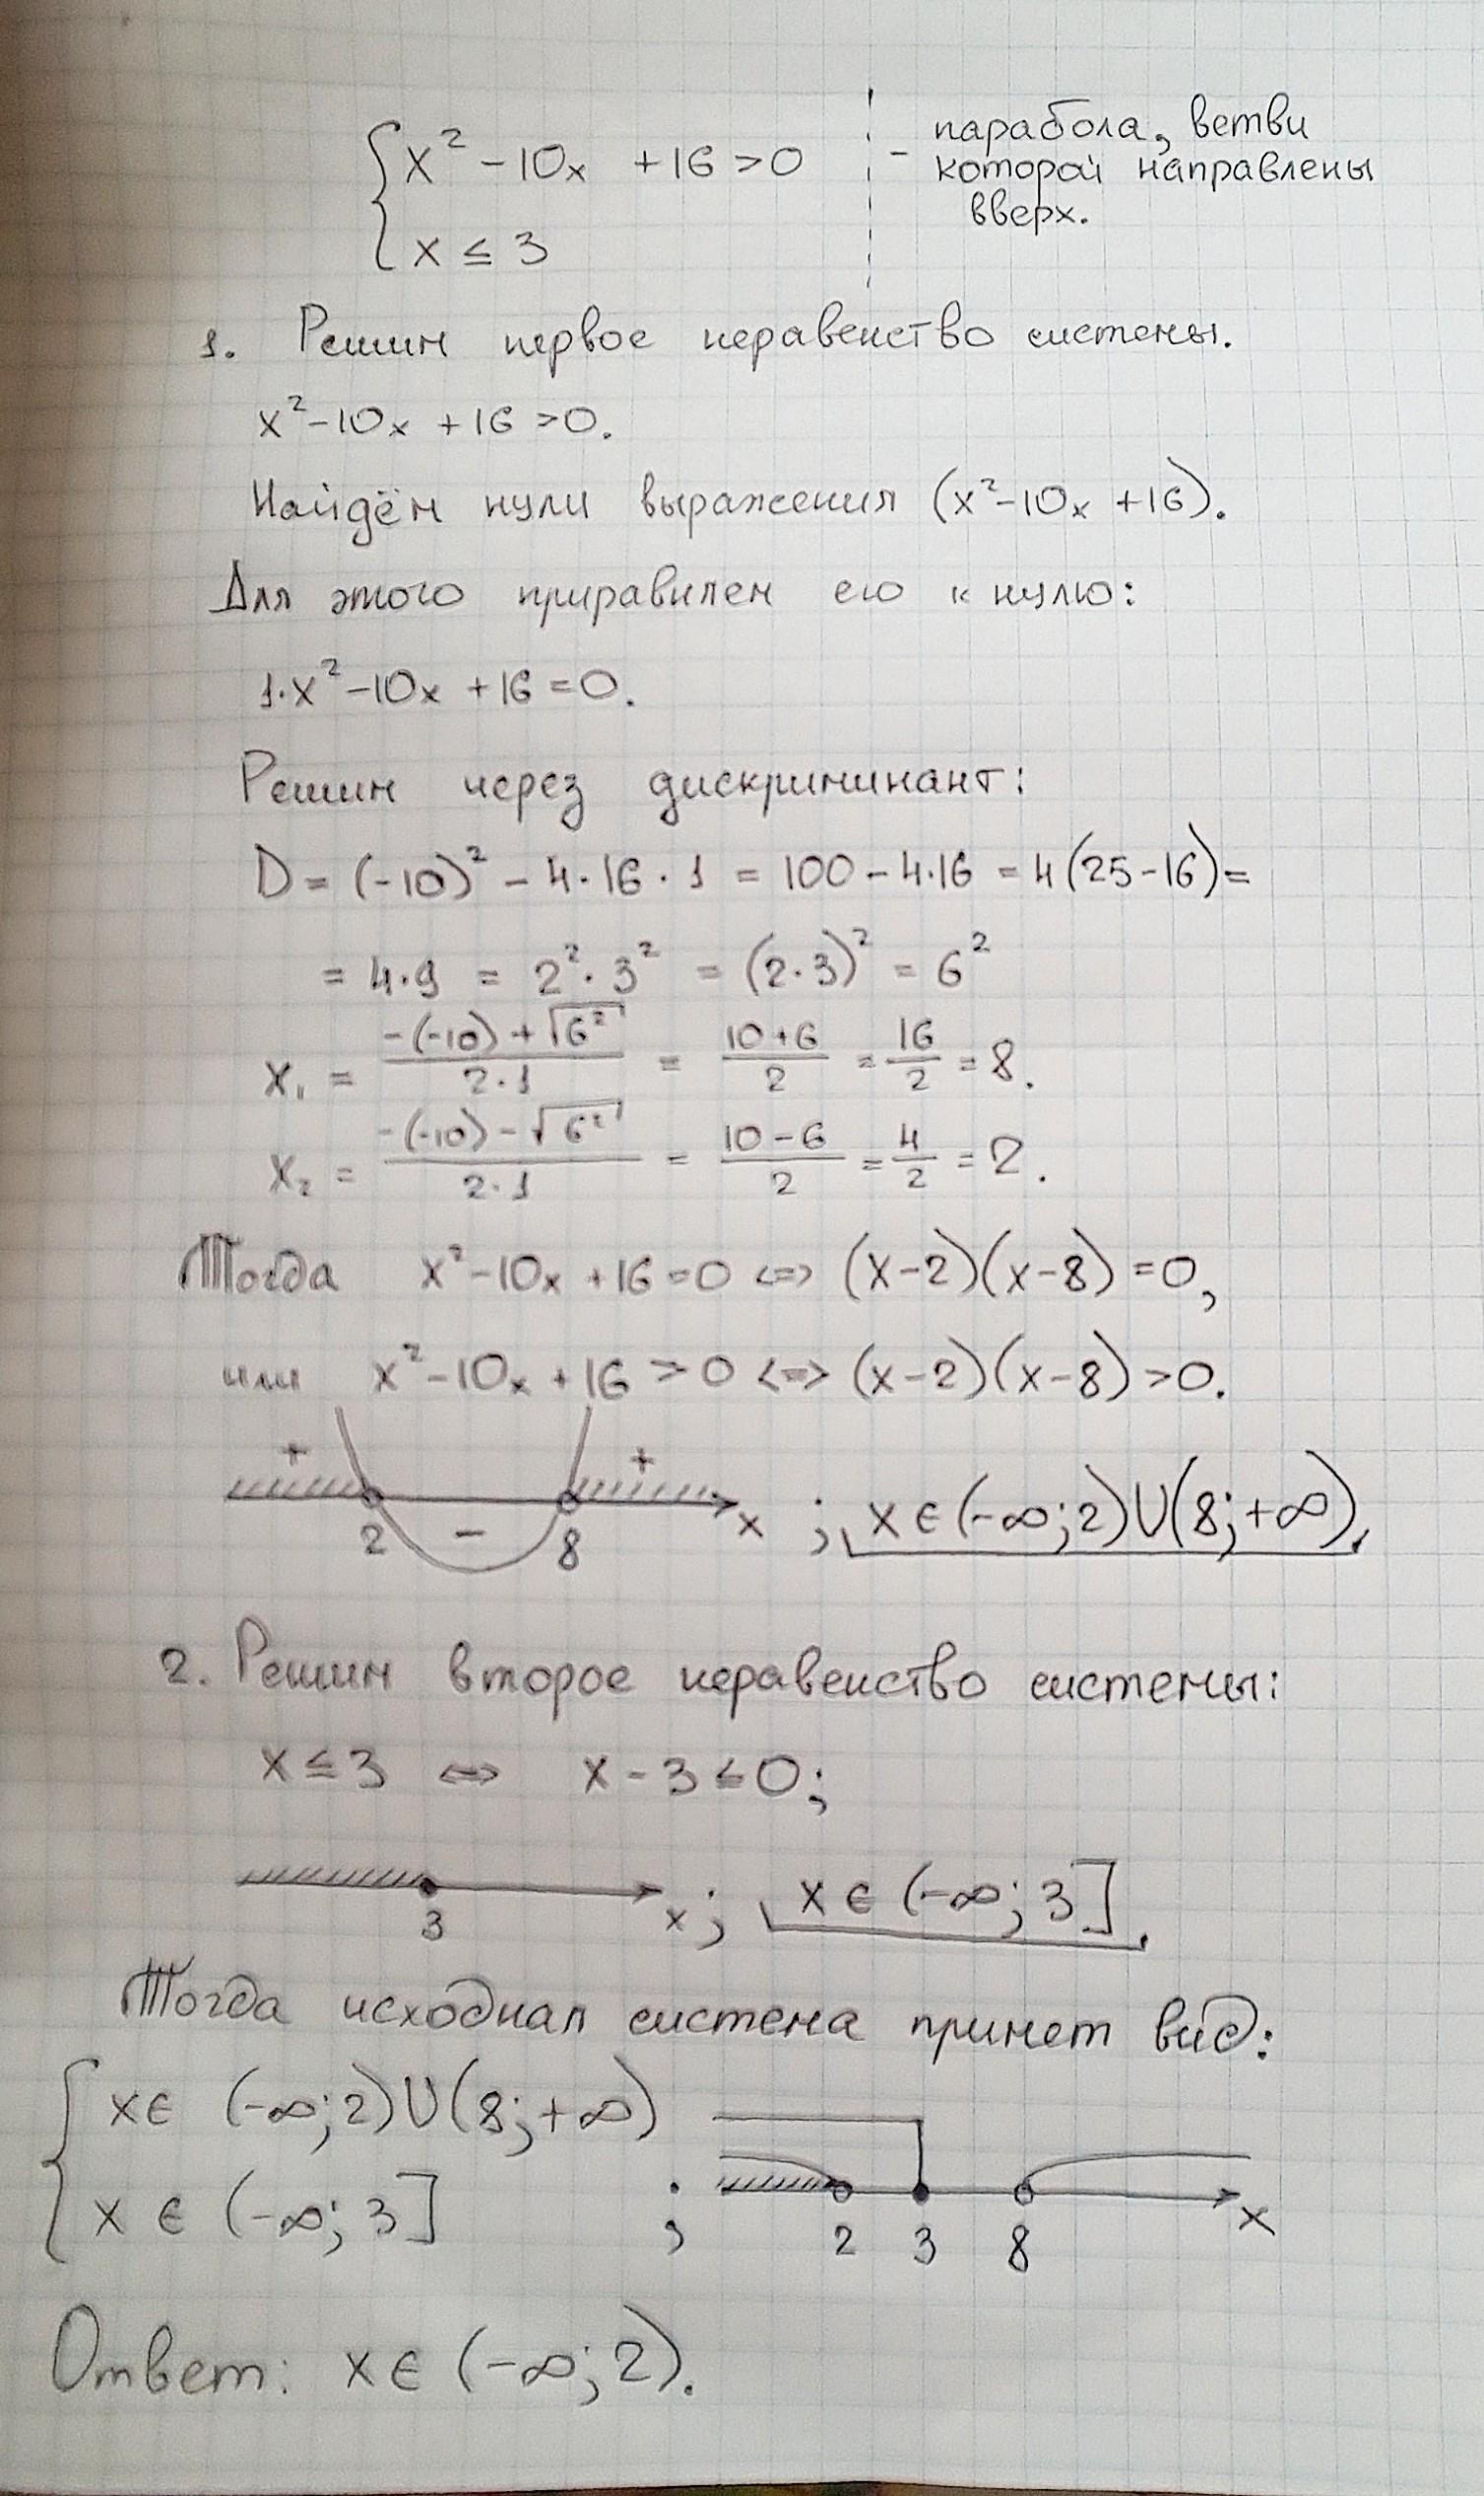 { x² - 10x + 16 > 0
x ≤ 3
- парабола, ветви
которой направлены
вверх.
1. Решим первое неравенство системы.
x² - 10x + 16 > 0.
Найдём нули выражения (x² - 10x + 16).
Для этого приравняем его к нулю:
1·x² - 10x + 16 = 0.
Решим через дискриминант:
D = (-10)² - 4·16·1 = 100 - 4·16 = 4(25-16) =
= 4·9 = 2²·3² = (2·3)² = 6²
x₁ = (-(-10) + √6²)/(2·1) = (10+6)/2 = 16/2 = 8.
x₂ = (-(-10) - √6²)/(2·1) = (10-6)/2 = 4/2 = 2.
Тогда x² - 10x + 16 = 0 <=> (x-2)(x-8) = 0,
или x² - 10x + 16 > 0 <=> (x-2)(x-8) > 0.
+ +
2 - 8 x ; x ∈ (-∞; 2) U (8; +∞).
2. Решим второе неравенство системы:
x ≤ 3 <=> x - 3 ≤ 0;
3 x; x ∈ (-∞; 3].
Тогда исходная система примет вид:
{ x ∈ (-∞; 2) U (8; +∞)
x ∈ (-∞; 3] ;
2 3 8 x
Ответ: x ∈ (-∞; 2).